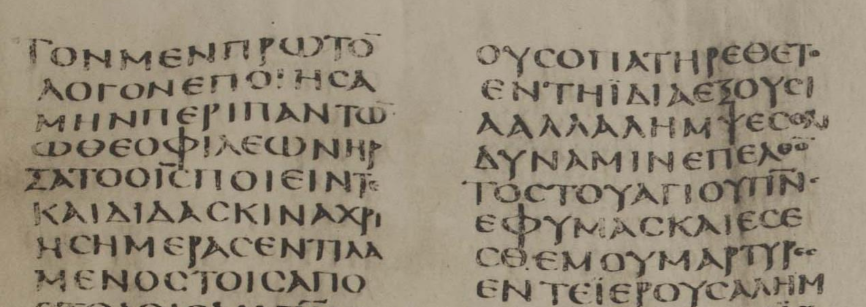 ΤΟΝΜΕΝΠΡΩΤΟ̅
ΛΟΓΟΝΕΠΟΙΗϹΑ
ΜΗΝΠΕΡΙΠΑΝΤΩ̅
ΩΘΕΟΦΙΛΕΩΝΗΡ
ΞΑΤΟΟΙ̅Ϲ̅ΠΟΙΕΙΝΤΕ
ΚΑΙΔΙΔΑϹΚΙΝΑΧΡΙ
ΗϹΗΜΕΡΑϹΕΝΤΙΛΑ
ΜΕΝΟϹΤΟΙϹΑΠΟ
ΟΥϹΟΠΑΤΗΡΕΘΕΤΟ
ΕΝΤΗΪΔΙΑΕΞΟΥϹΙ
ΑΑΛΛΑΛΗΜΨΕϹΘΑΙ
ΔΥΝΑΜΙΝΕΠΕΛΘΟ̅
ΤΟϹΤΟΥΑΓΙΟΥΠ̅Ν̅Ϲ̅
ΕΦΥΜΑϹΚΑΙΕϹΕ
ϹΘΕΜΟΥΜΑΡΤΥΡΕϹ
ΕΝΤΕΪΕΡΟΥϹΑΛΗΜ